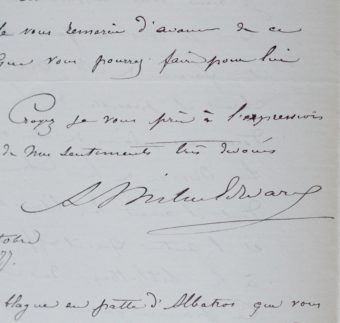 Je vous remercie d'avance de ce
que vous pourrez faire pour lui
Croyez je vous prie à l'expression
de mes sentiments très dévoués
A Milne Edwards
tobre
77.
blague en patte d'Albatros que vous